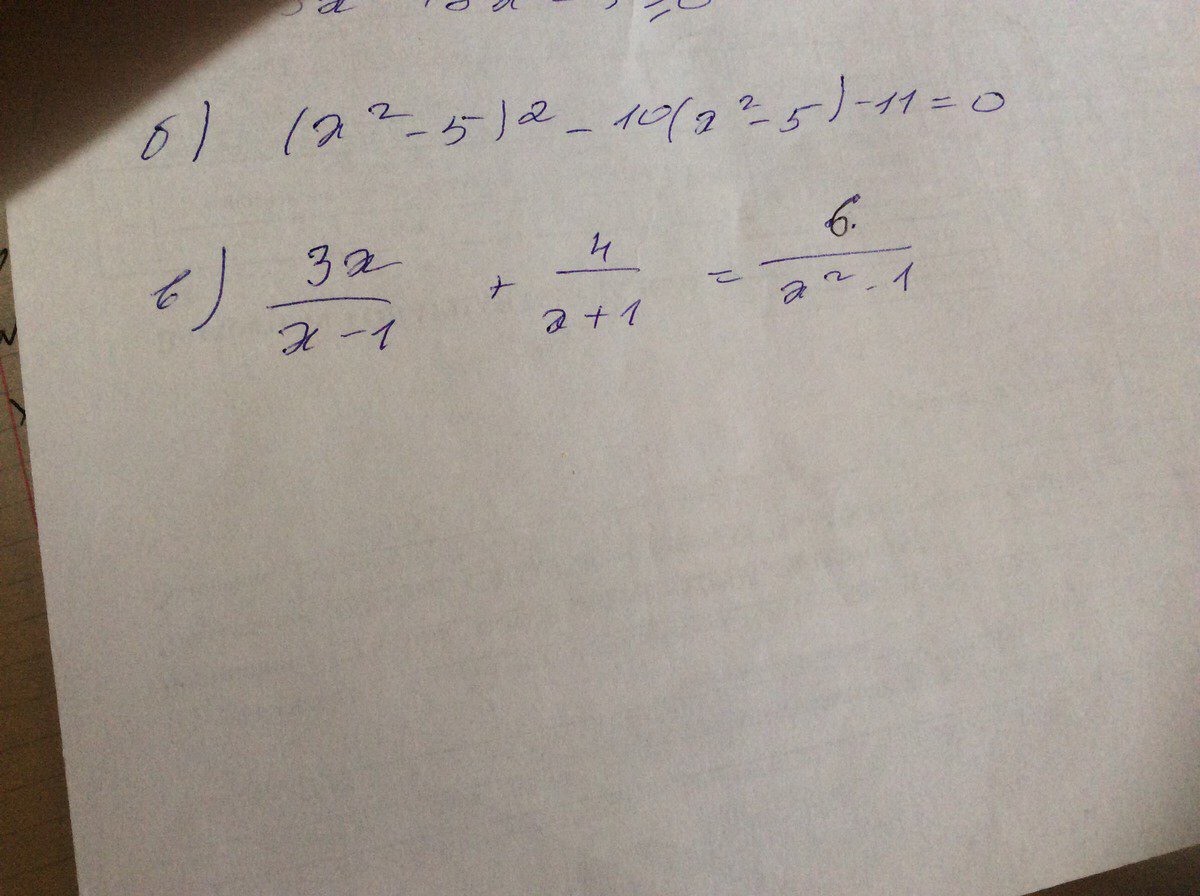 б) (x² - 5)² - 10(x² - 5) - 11 = 0
в) 3x/(x - 1) + 4/(x + 1) = 6/(x² - 1)